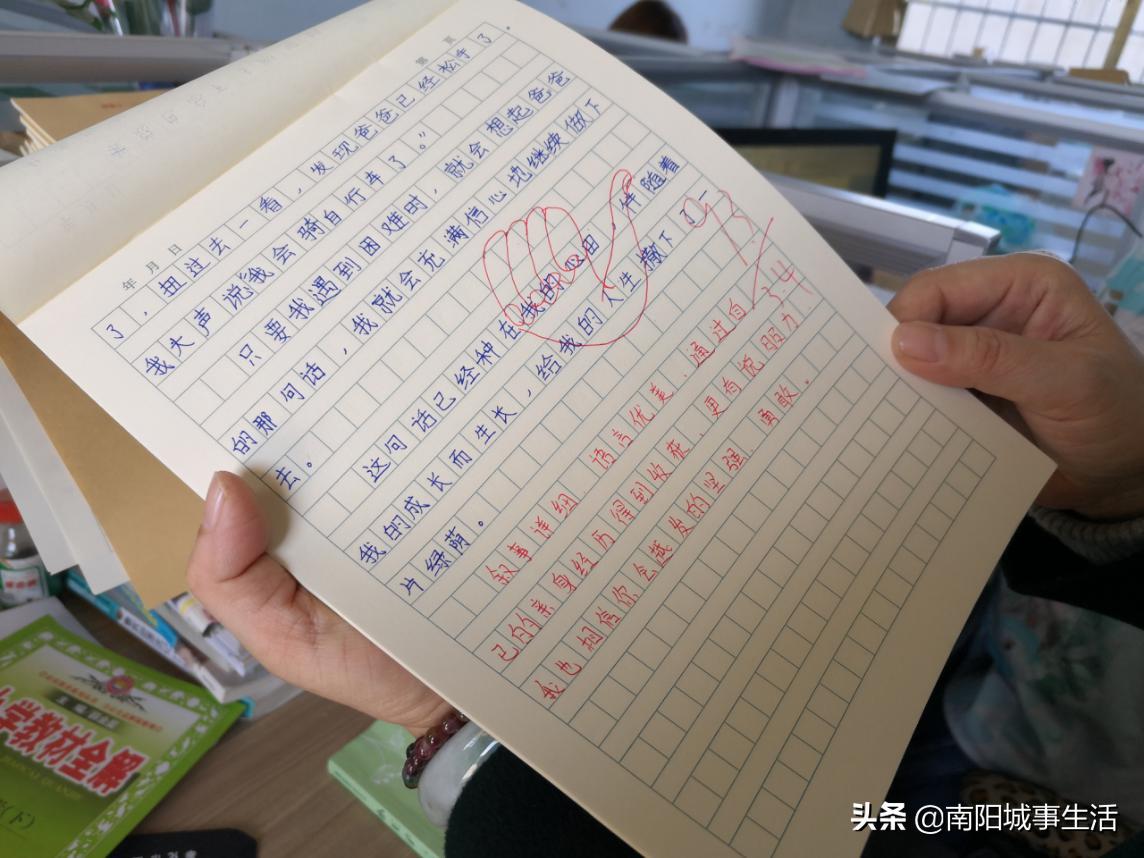 第 页
年 月 日
了，扭过去一看，发现爸爸已经松手了。
我大声说“我会骑自行车了。”
只要我遇到困难时，就会想起爸爸
的那句话，我就会充满信心地继续做下
去。
这句话已经种在我的心田，伴随着
我的成长而生长，给我的人生撒下了一
片绿荫。
叙事详细，语言优美，通过自
己的亲身经历得到收获，更有说服力
我也相信你会越发的坚强、勇敢。
学教材全解
(下)
头条 @南阳城事生活